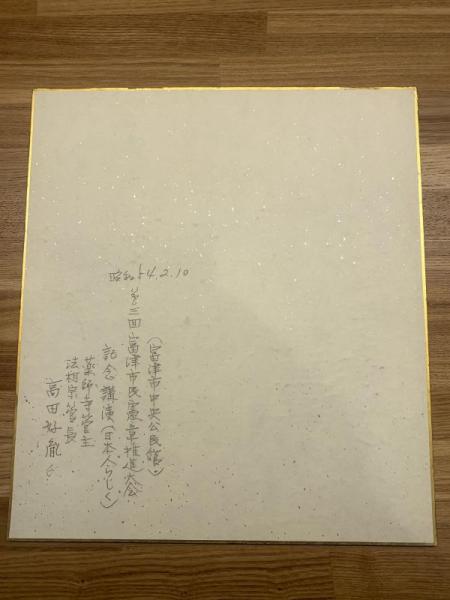 昭和54.2.10
(富津市中央公民館)
第三回富津市民憲章推進大会
記念講演(日本人らしく)
薬師寺管主
法相宗管長
高田好胤